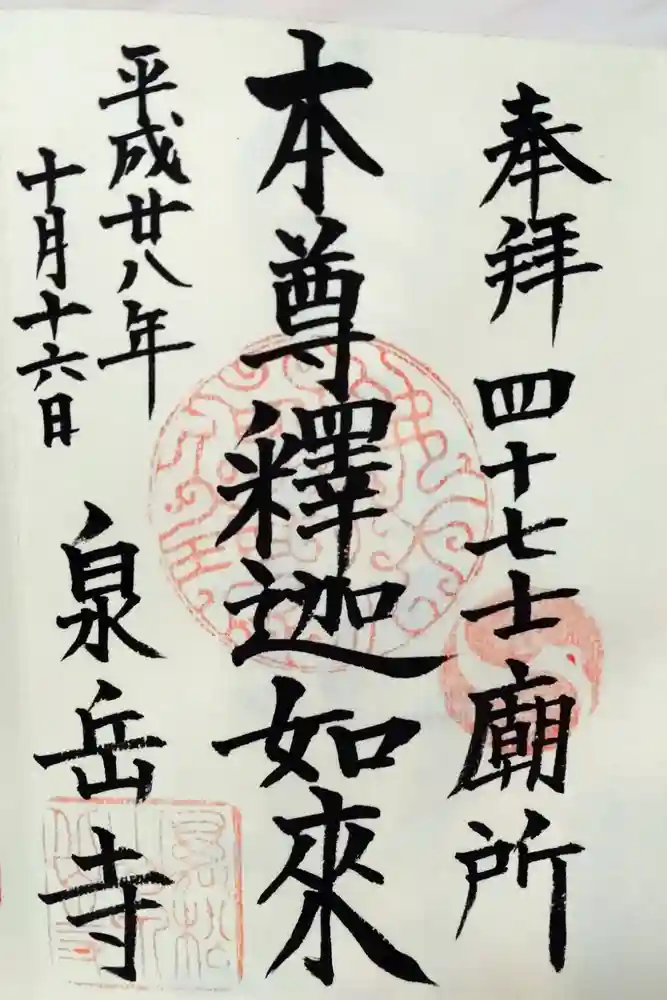 奉拝 四十七士廟所
本尊釋迦如來
平成廿八年
十月十六日
泉岳寺